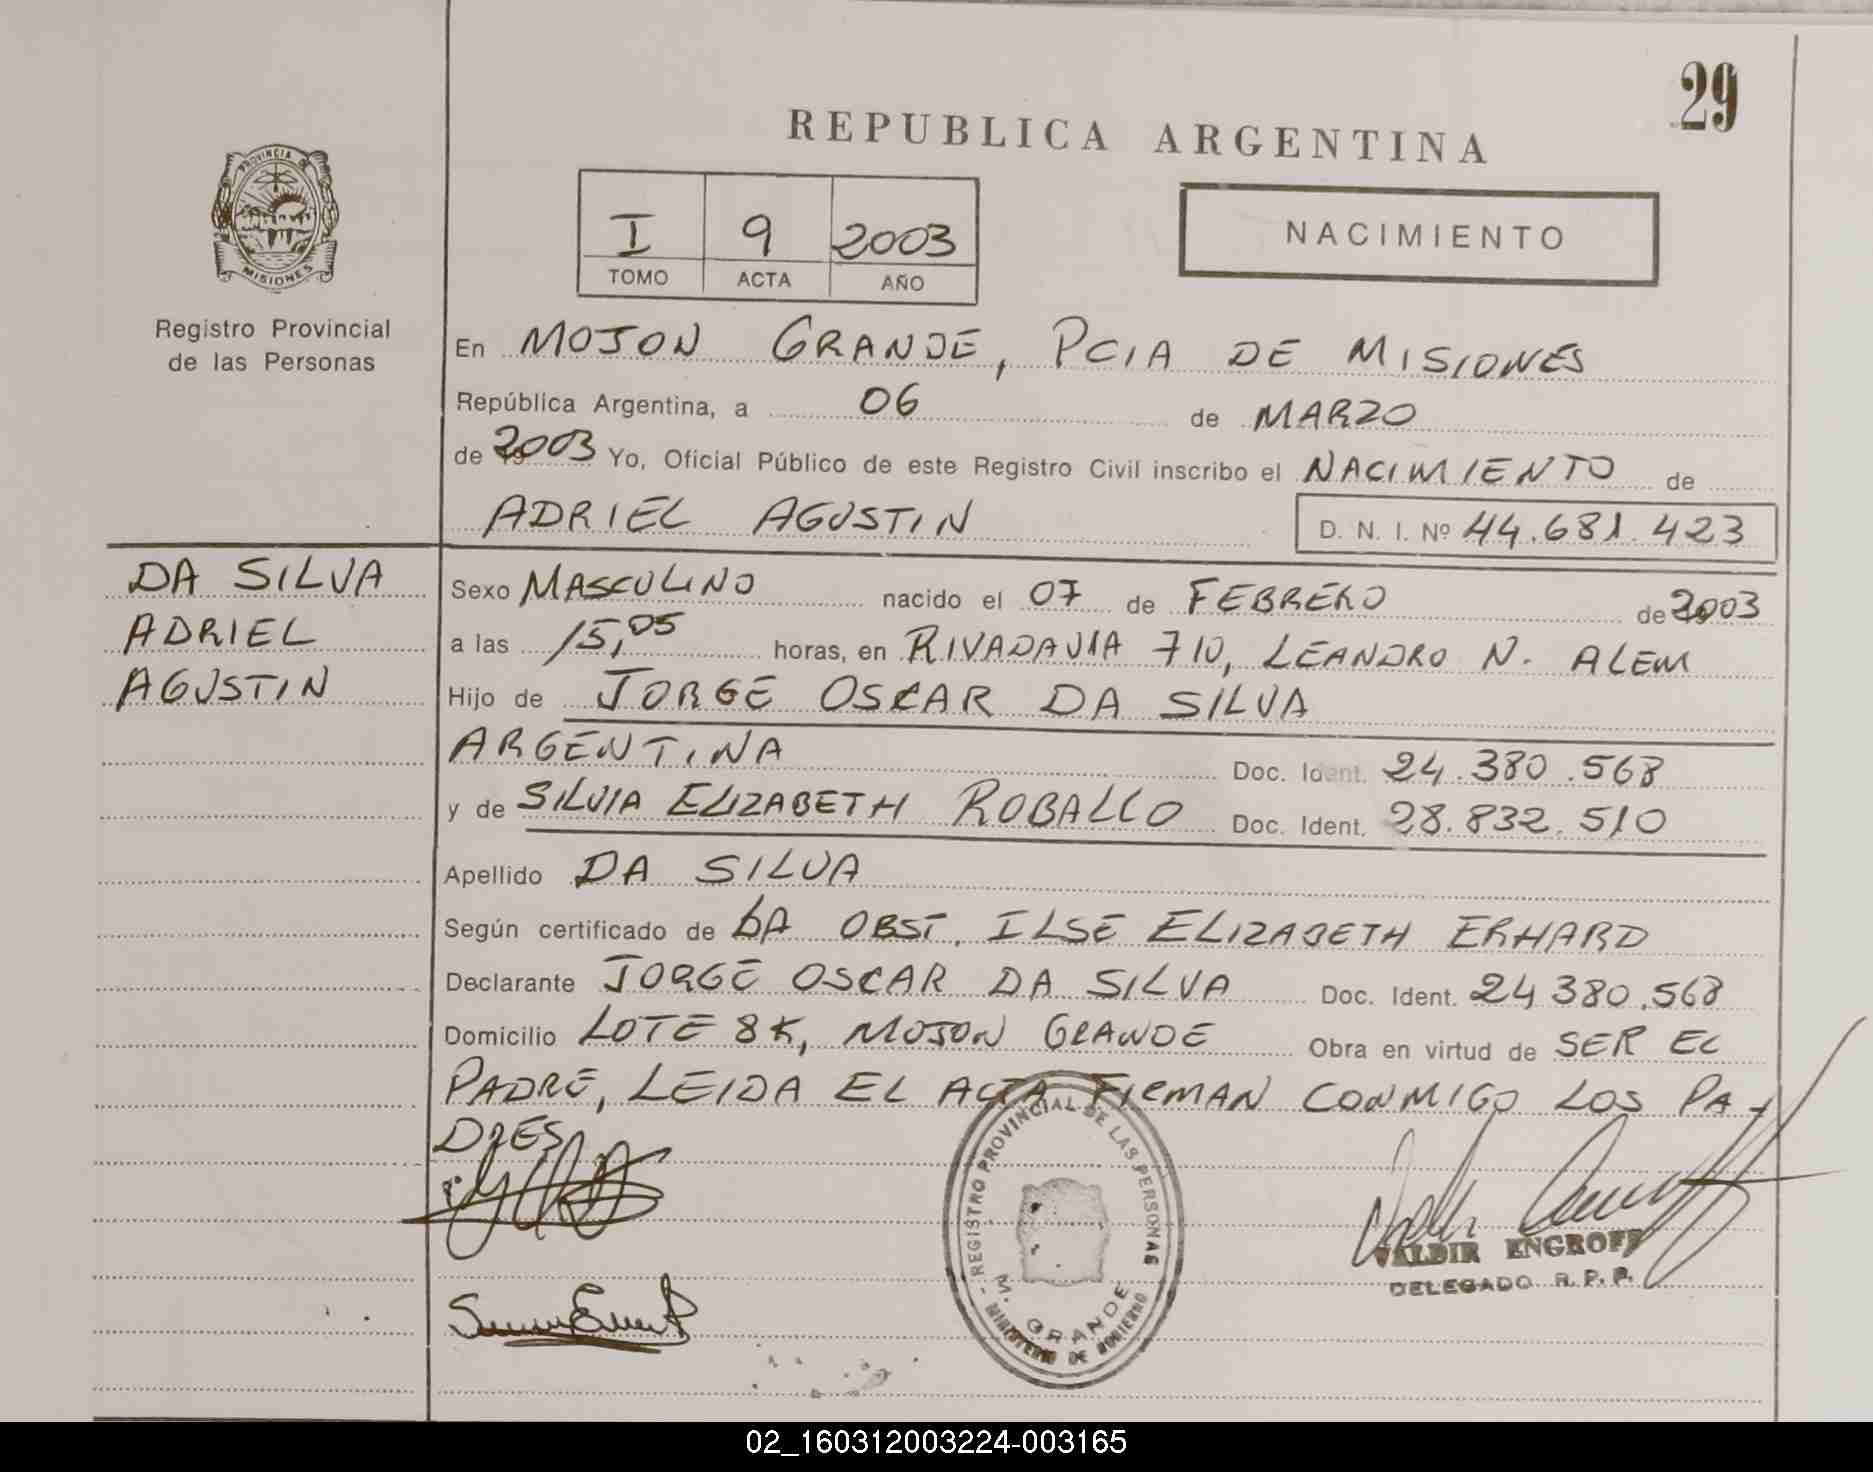 29
REPUBLICA ARGENTINA
PROVINCIA DE
MISIONES
Registro Provincial
de las Personas
I 9 2003
TOMO ACTA AÑO
NACIMIENTO
En MOJON GRANDE, PCIA DE MISIONES
República Argentina, a 06 de MARZO
de 2003 Yo, Oficial Público de este Registro Civil inscribo el NACIMIENTO de
ADRIEL AGUSTIN D. N. I. Nº 44.681.423
DA SILVA
ADRIEL
AGUSTIN
Sexo MASCULINO nacido el 07 de FEBRERO de 2003
a las 15,05 horas, en RIVADAVIA 710, LEANDRO N. ALEM
Hijo de JORGE OSCAR DA SILVA
ARGENTINA Doc. Ident. 24.380.568
y de SILVIA ELIZABETH ROBALLO Doc. Ident. 28.832.510
Apellido DA SILVA
Según certificado de LA OBST. ILSE ELIZABETH ERHARD
Declarante JORGE OSCAR DA SILVA Doc. Ident. 24 380.568
Domicilio LOTE 8K, MOJON GRANDE Obra en virtud de SER EL
PADRE, LEIDA EL ACTA FIRMAN CONMIGO LOS PA-
DRES
REGISTRO PROVINCIAL DE LAS PERSONAS
M. GRANDE
MINISTERIO DE GOBIERNO
VALDIR ENGROFF
DELEGADO R. P. P.
02_160312003224-003165